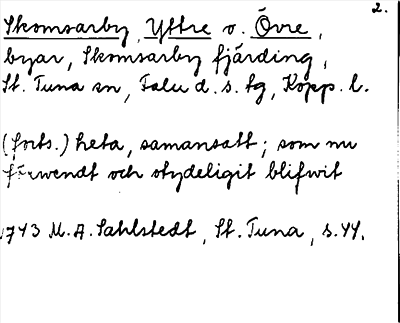 2.
Skomsarby, Yttre o. Övre,
byar, Skomsarby fjärding,
St. Tuna sn, Falu d. s. tg, Kopp. l.
(forts.) heta, samansatt; som nu
förwendt och otydeligit blifwit
1743 M. A. Sahlstedt, St. Tuna, s. 44.